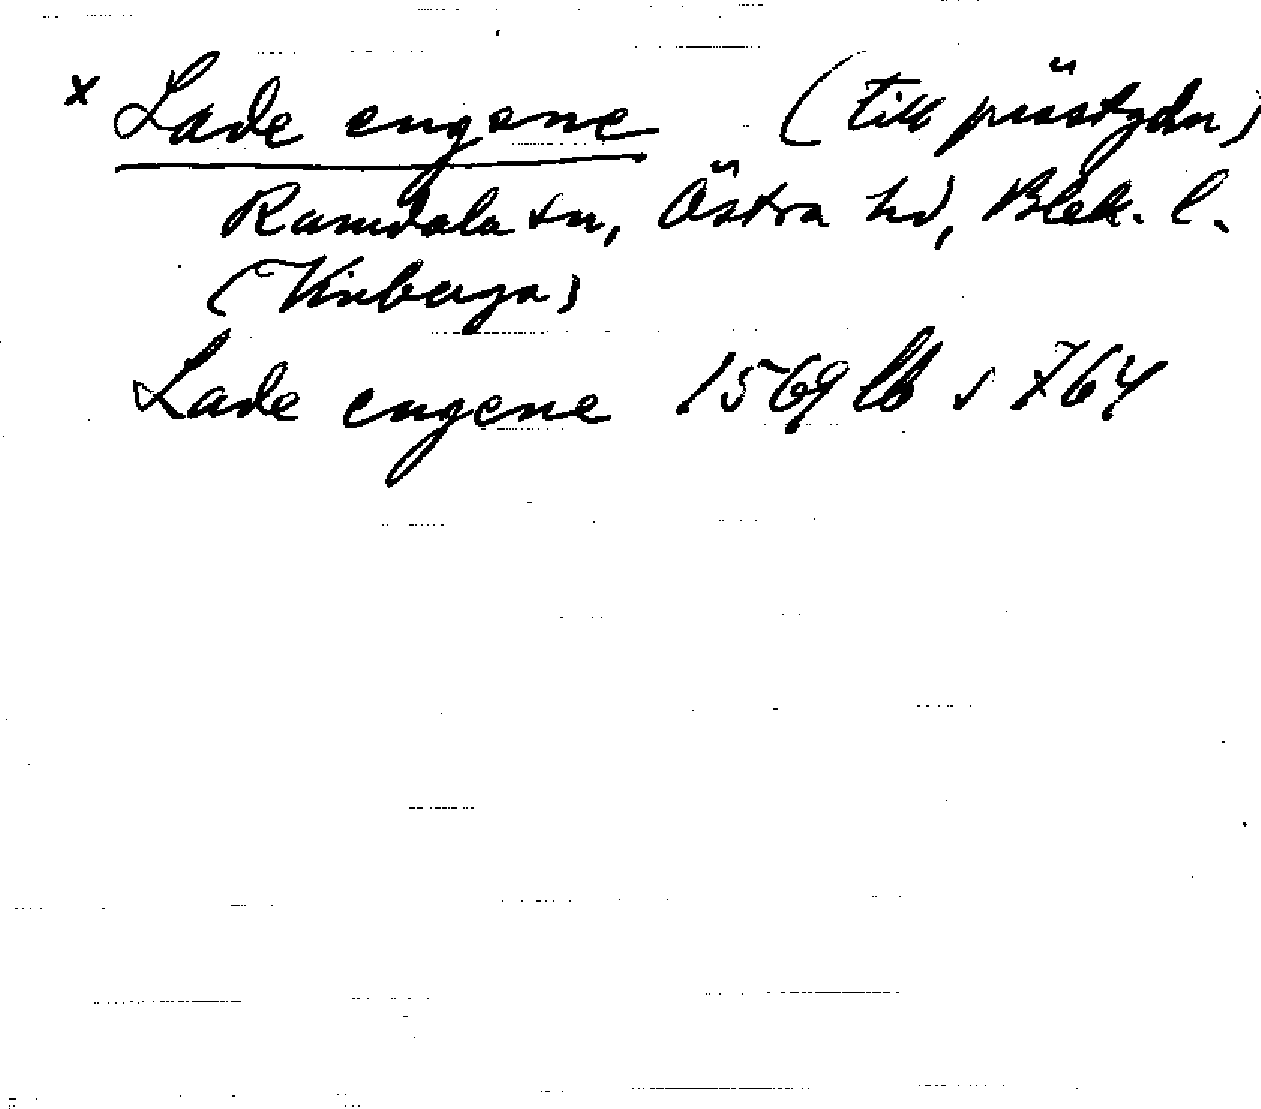 x Lade engene (till prästgdn)
Ramdala sn, Östra hd, Blek. l.
(Vinberga)
Lade engene 1569 lb s 764